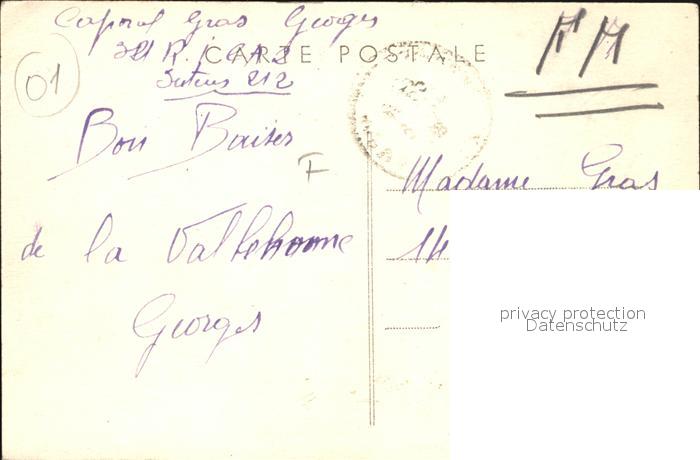 Caporal Gras Georges
CARTE POSTALE
FM
Secteur 212
01
Bon Baiser
F
Madame Gras
de la Valbonne
14
Georges
privacy protection
Datenschutz